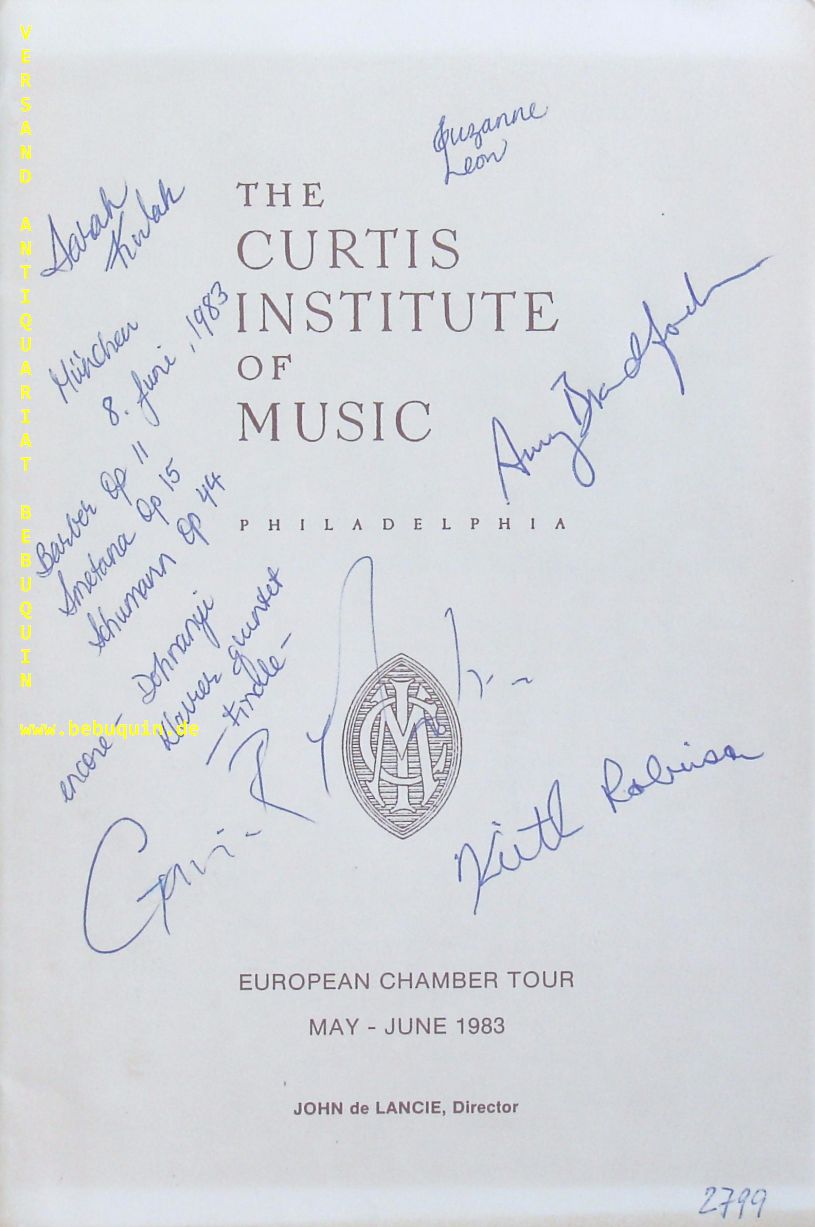 VERSAND ANTIQUARIAT BEBUQUIN
www.bebuquin.de
Suzanne
Leon
Sarah
THE
CURTIS
INSTITUTE
OF
MUSIC
PHILADELPHIA
München
8. Juni, 1983
Amy Bradford
Barber Op 11
Smetana Op 15
Schumann Op 44
encore - Dohnanyi
Klavier Quintet
- Finale -
Keith Robinson
EUROPEAN CHAMBER TOUR
MAY - JUNE 1983
JOHN de LANCIE, Director
2799